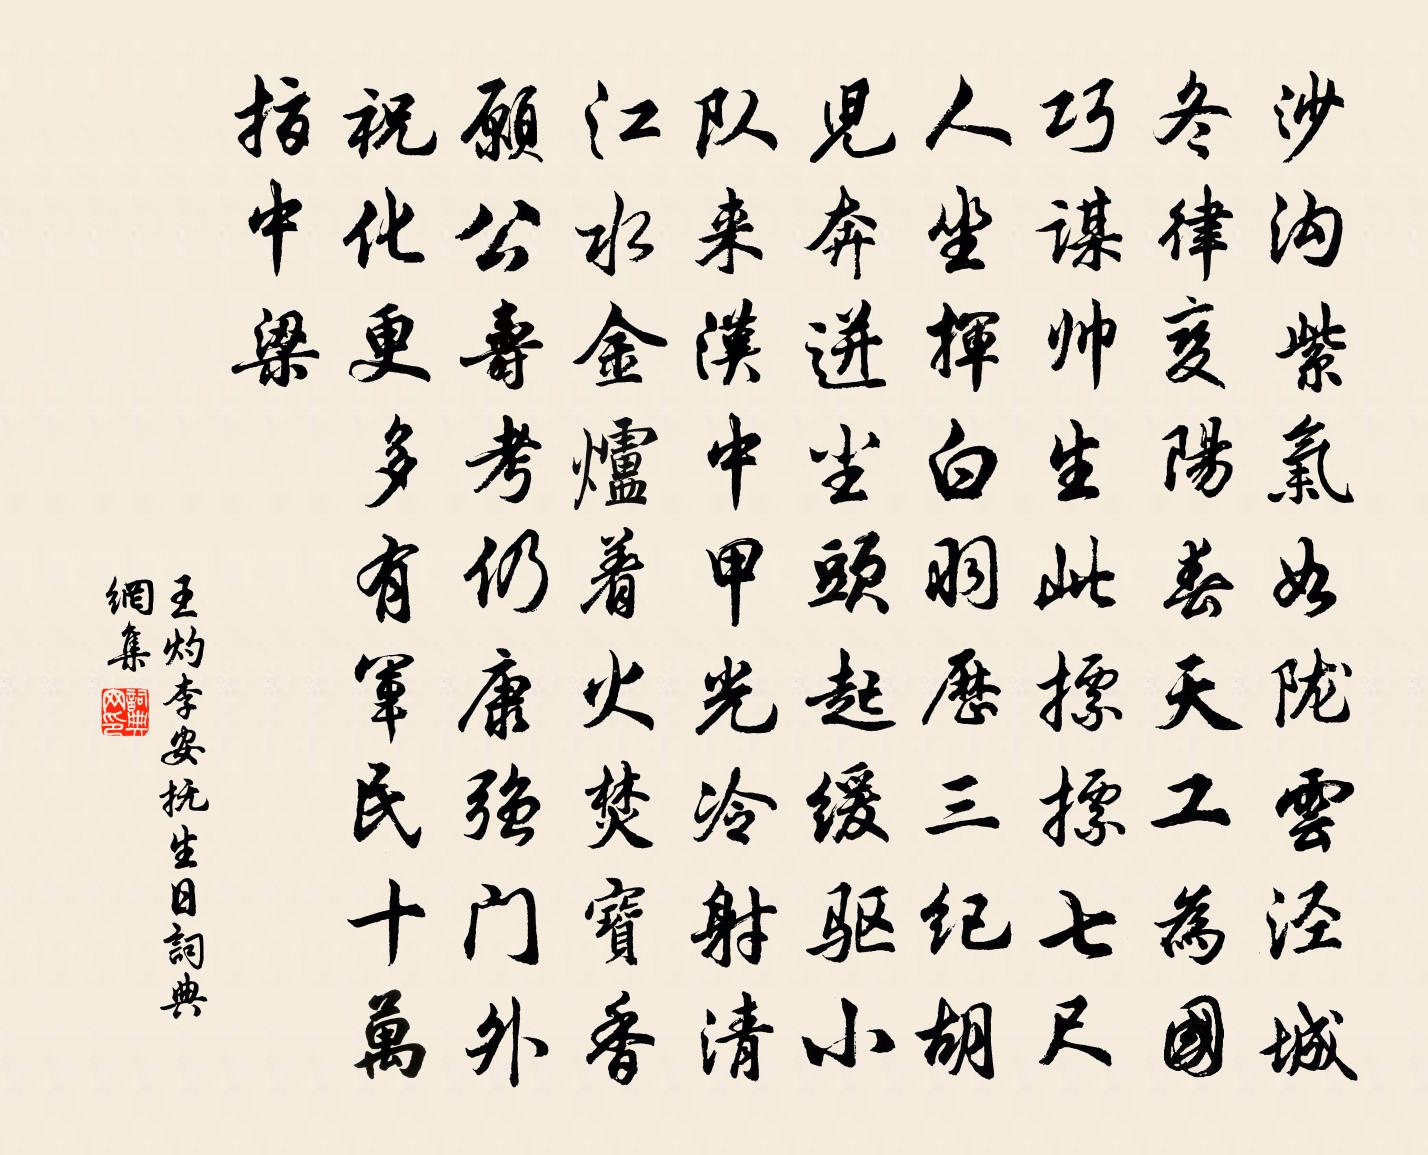 沙沟紫氣如陇雲泾城
冬律变陽春天工為國
巧谋帅生此摽摽七尺
人坐揮白羽歷三纪胡
児奔迸尘頭起缓驱小
队来漢中甲光冷射清
江水金爐着火焚寶香
願公壽考仍康强门外
祝化更多有軍民十萬
指中梁
王灼李安抚生日詞典
網集
詞典網印